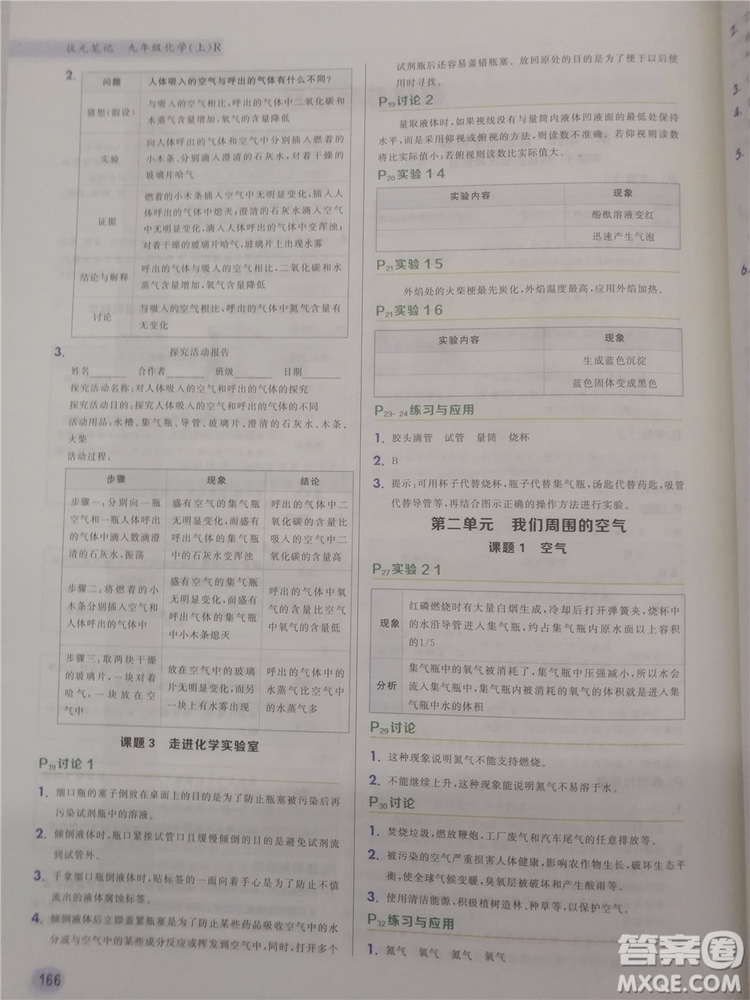 极光笔记 九年级化学(上)R
2.
问题 人体吸入的空气与呼出的气体有什么不同?
猜想(假设) 与吸入的空气相比,呼出的气体中二氧化碳和
水蒸气含量增加,氧气含量降低
实验 向人体吸入的空气和呼出的气体中分别插入燃着的
小木条、分别滴入澄清的石灰水,对着干燥的
玻璃片哈气
证据 燃着的小木条插入空气中无明显变化,插入人体
呼出的气体中熄灭;澄清的石灰水滴入空气中
无明显变化,滴入人体呼出的气体中变浑浊;
对着干燥的玻璃片哈气,玻璃片上出现水雾
结论与解释 呼出的气体与吸入的空气相比,二氧化碳和水
蒸气含量增加,氧气含量降低
讨论 与吸入的空气相比,呼出的气体中氮气含量有
无变化
3. 探究活动报告
姓名 合作者 班级 日期
探究活动名称:对人体吸入的空气和呼出的气体的探究
探究活动目的:探究人体吸入的空气和呼出的气体的不同
活动用品:水槽、集气瓶、导管、玻璃片、澄清的石灰水、木条、
火柴
活动过程:
步骤 现象 结论
步骤一:分别向一瓶
空气和一瓶人体呼出
的气体中滴入数滴澄
清的石灰水,振荡
盛有空气的集气瓶
无明显变化,而盛有
呼出的气体的集气
瓶中石灰水变浑浊
呼出的气体中二
氧化碳含量比空
气中二氧化碳含
量高
步骤二:将燃着的小
木条分别插入空气和
人体呼出的气体中
盛有空气的集气瓶
无明显变化,而盛有
呼出的气体的集气
瓶中木条熄灭
呼出的气体中氧
气含量比空气中
氧气含量低
步骤三:取两块干燥
的玻璃片,一块对着
哈气,一块放在空气
中
放在空气中的玻璃
片上无明显变化,而
另一块上出现水雾
呼出的气体中的
水蒸气比空气中
的水蒸气多
课题 3 走进化学实验室
P19讨论 1
1. 细口瓶的塞子倒放在桌面上的目的是为了防止瓶塞被污染后再
污染试剂瓶中的溶液。
2. 倾倒液体时,瓶口紧挨试管口且缓慢倾倒的目的是避免试剂流
到试管外。
3. 手拿细口瓶倒液体时,贴标签的一面向着手心是为了防止不慎
流出的液体腐蚀标签。
4. 倾倒液体后立即盖紧瓶塞是为了防止某些药品吸收空气中的水
分或与空气中的某些成分反应或挥发出来污染空气。打开多个
166
试剂瓶后还容易盖错瓶塞。放回原处的目的是为了方便下次使
用时寻找。
P19讨论 2
量取液体时,如果视线没有与量筒内液体凹液面的最低处保持
水平,而是采用仰视或俯视的方法,则读数都不准确。若仰视则读数
将比实际值小;若俯视则读数将比实际值大。
P20实验 1-4
实验内容 现象
酚酞溶液变红
迅速产生气泡
P21实验 1-5
外焰处的火柴梗最先炭化,外焰温度最高,应用外焰加热。
P21实验 1-6
实验内容 现象
生成蓝色沉淀
蓝色固体变成黑色
P23-24练习与应用
1. 胶头滴管 试管 量筒 烧杯
2. B
3. 提示:可用杯子代替烧杯,瓶子代替集气瓶,汤匙代替药匙,吸管
代替导管等,再结合图示正确的操作方法进行实验。
第二单元 我们周围的空气
课题 1 空气
P27实验 2-1
现象 红磷燃烧时有大量白烟生成,冷却后打开弹簧夹,烧杯中
的水沿导管进入集气瓶,约占集气瓶内原水面以上容积
的1/5
分析 集气瓶中的氧气被消耗了,集气瓶中压强减小,所以水会
流入集气瓶中,进入集气瓶内被消耗的氧气的体积就是进入集
气瓶中水的体积
P29讨论
1. 这种现象说明氮气不能支持燃烧。
2. 不能继续上升,这种现象说明氮气不易溶于水。
P30讨论
1. 焚烧垃圾,燃放鞭炮,工厂废气和汽车尾气的任意排放等。
2. 被污染的空气严重损害人体健康,影响农作物生长,破坏生态平
衡,使全球气候变暖,臭氧层被破坏和产生酸雨等。
3. 使用清洁能源,积极植树造林、种草等,以保护空气。
P32练习与应用
1. 氮气 氧气 氮气 氧气
答案圈
MXQE.COM